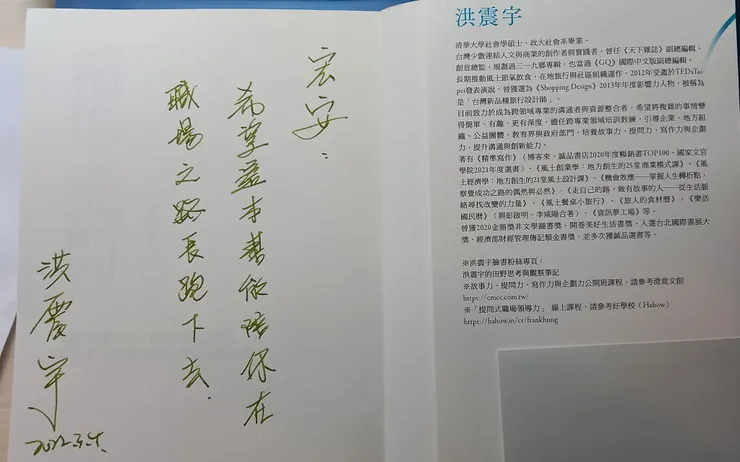 宏安：
希望這本書能陪你在
職場之路長跑下去.
洪震宇
洪震宇
清華大學社會學碩士、政大社會系畢業。
台灣少數連結人文與商業的創作者與實踐者。曾任《天下雜誌》副總編輯、
創意總監，規劃過三一九鄉專輯，也當過《GQ》國際中文版副總編輯。
長期推動風土節氣飲食、在地旅行與社區組織運作，2012年受邀於TEDxTai-
pei發表演說，曾獲選為《Shopping Design》2013年年度影響力人物，被稱為
是「台灣新品種旅行設計師」。
目前致力於成為跨領域專業的溝通者與資源整合者，希望將複雜的事情變
得簡單、有趣，更有深度。擔任跨專業領域培訓教練，引導企業、地方組
織、公益團體、教育界與政府部門，培養故事力、提問力、寫作力與企劃
力，提升溝通與創新能力。
著有《精準寫作》（博客來、誠品書店2020年度暢銷書TOP100，國家文官
學院2021年度選書）、《風土創業學：地方創生的25堂商業模式課》、《風
土經濟學：地方創生的21堂風土設計課》、《機會效應——掌握人生轉折點，
察覺成功之路的偶然與必然》、《走自己的路，做有故事的人——從生活脈
絡尋找改變的力量》、《風土餐桌小旅行》、《旅人的食材曆》、《樂活
國民曆》（與彭啟明、李咸陽合著）、《資訊夢工場》等。
曾獲2020金鼎獎非文學圖書獎、開卷美好生活書獎、入選台北國際書展大
獎，經濟部財經管理傳記類金書獎，並多次獲誠品選書等。
※洪震宇臉書粉絲專頁：
洪震宇的田野思考與觀察筆記
※故事力、提問力、寫作力與企劃力公開班課程，請參考澄意文創
https://cmcc.com.tw/
※「提問式職場領導力」 線上課程，請參考好學校（Hahow）
https://hahow.in/cr/frankhung